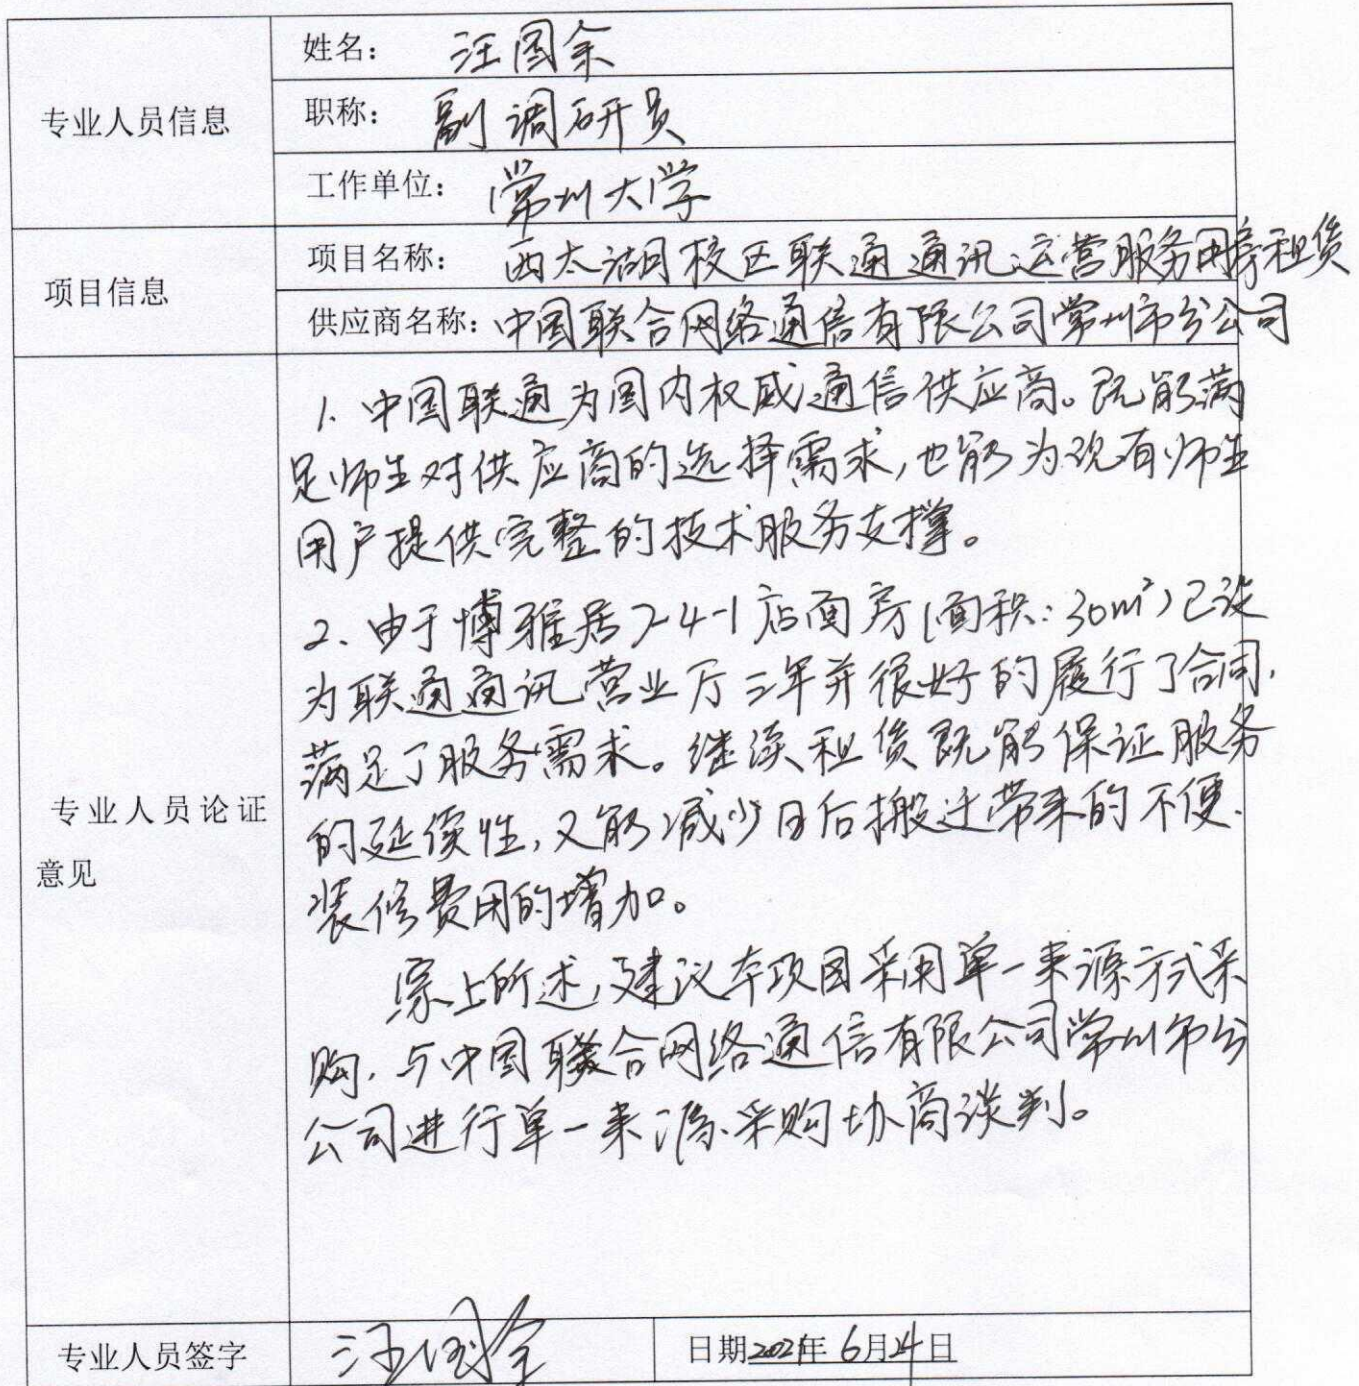 专业人员信息
姓名： 汪国余
职称： 副调研员
工作单位： 常州大学
项目信息
项目名称： 西太湖校区联通通讯运营服务用房租赁
供应商名称：中国联合网络通信有限公司常州市分公司
专业人员论证
意见
1. 中国联通为国内权威通信供应商。既能满
足师生对供应商的选择需求，也能为现有师生
用户提供完整的技术服务支撑。
2、由于博雅居24-1店面房（面积：30m²）已设
为联通通讯营业厅三年并很好的履行了合同，
满足了服务需求。继续租赁既能保证服务
的延续性，又能减少日后搬迁带来的不便、
装修费用的增加。
综上所述，建议本项目采用单一来源方式采
购，与中国联合网络通信有限公司常州市分
公司进行单一来源采购协商谈判。
专业人员签字
汪国余
日期2021年 6月24日